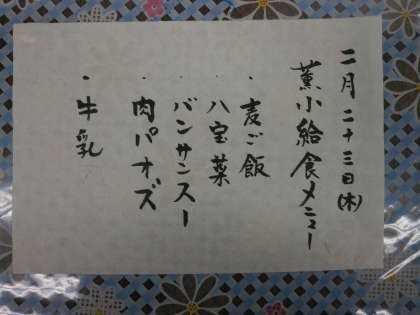 二月二十三日(木)
薫小給食メニュー
・麦ご飯
・八宝菜
・バンサンスー
・肉パオズ
・牛乳